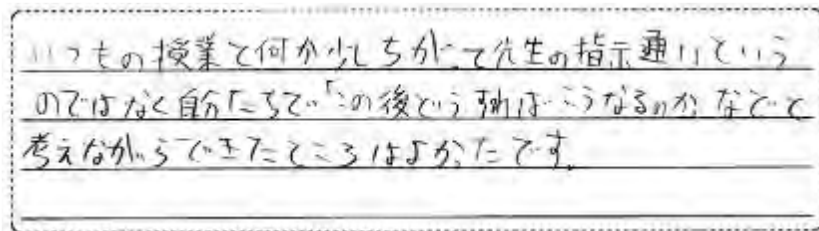 いつもの授業と何か少しちがって先生の指示通りという
のではなく自分たちで「この後どうすればこうなるのかなどと
考えながらできたところはよかったです。